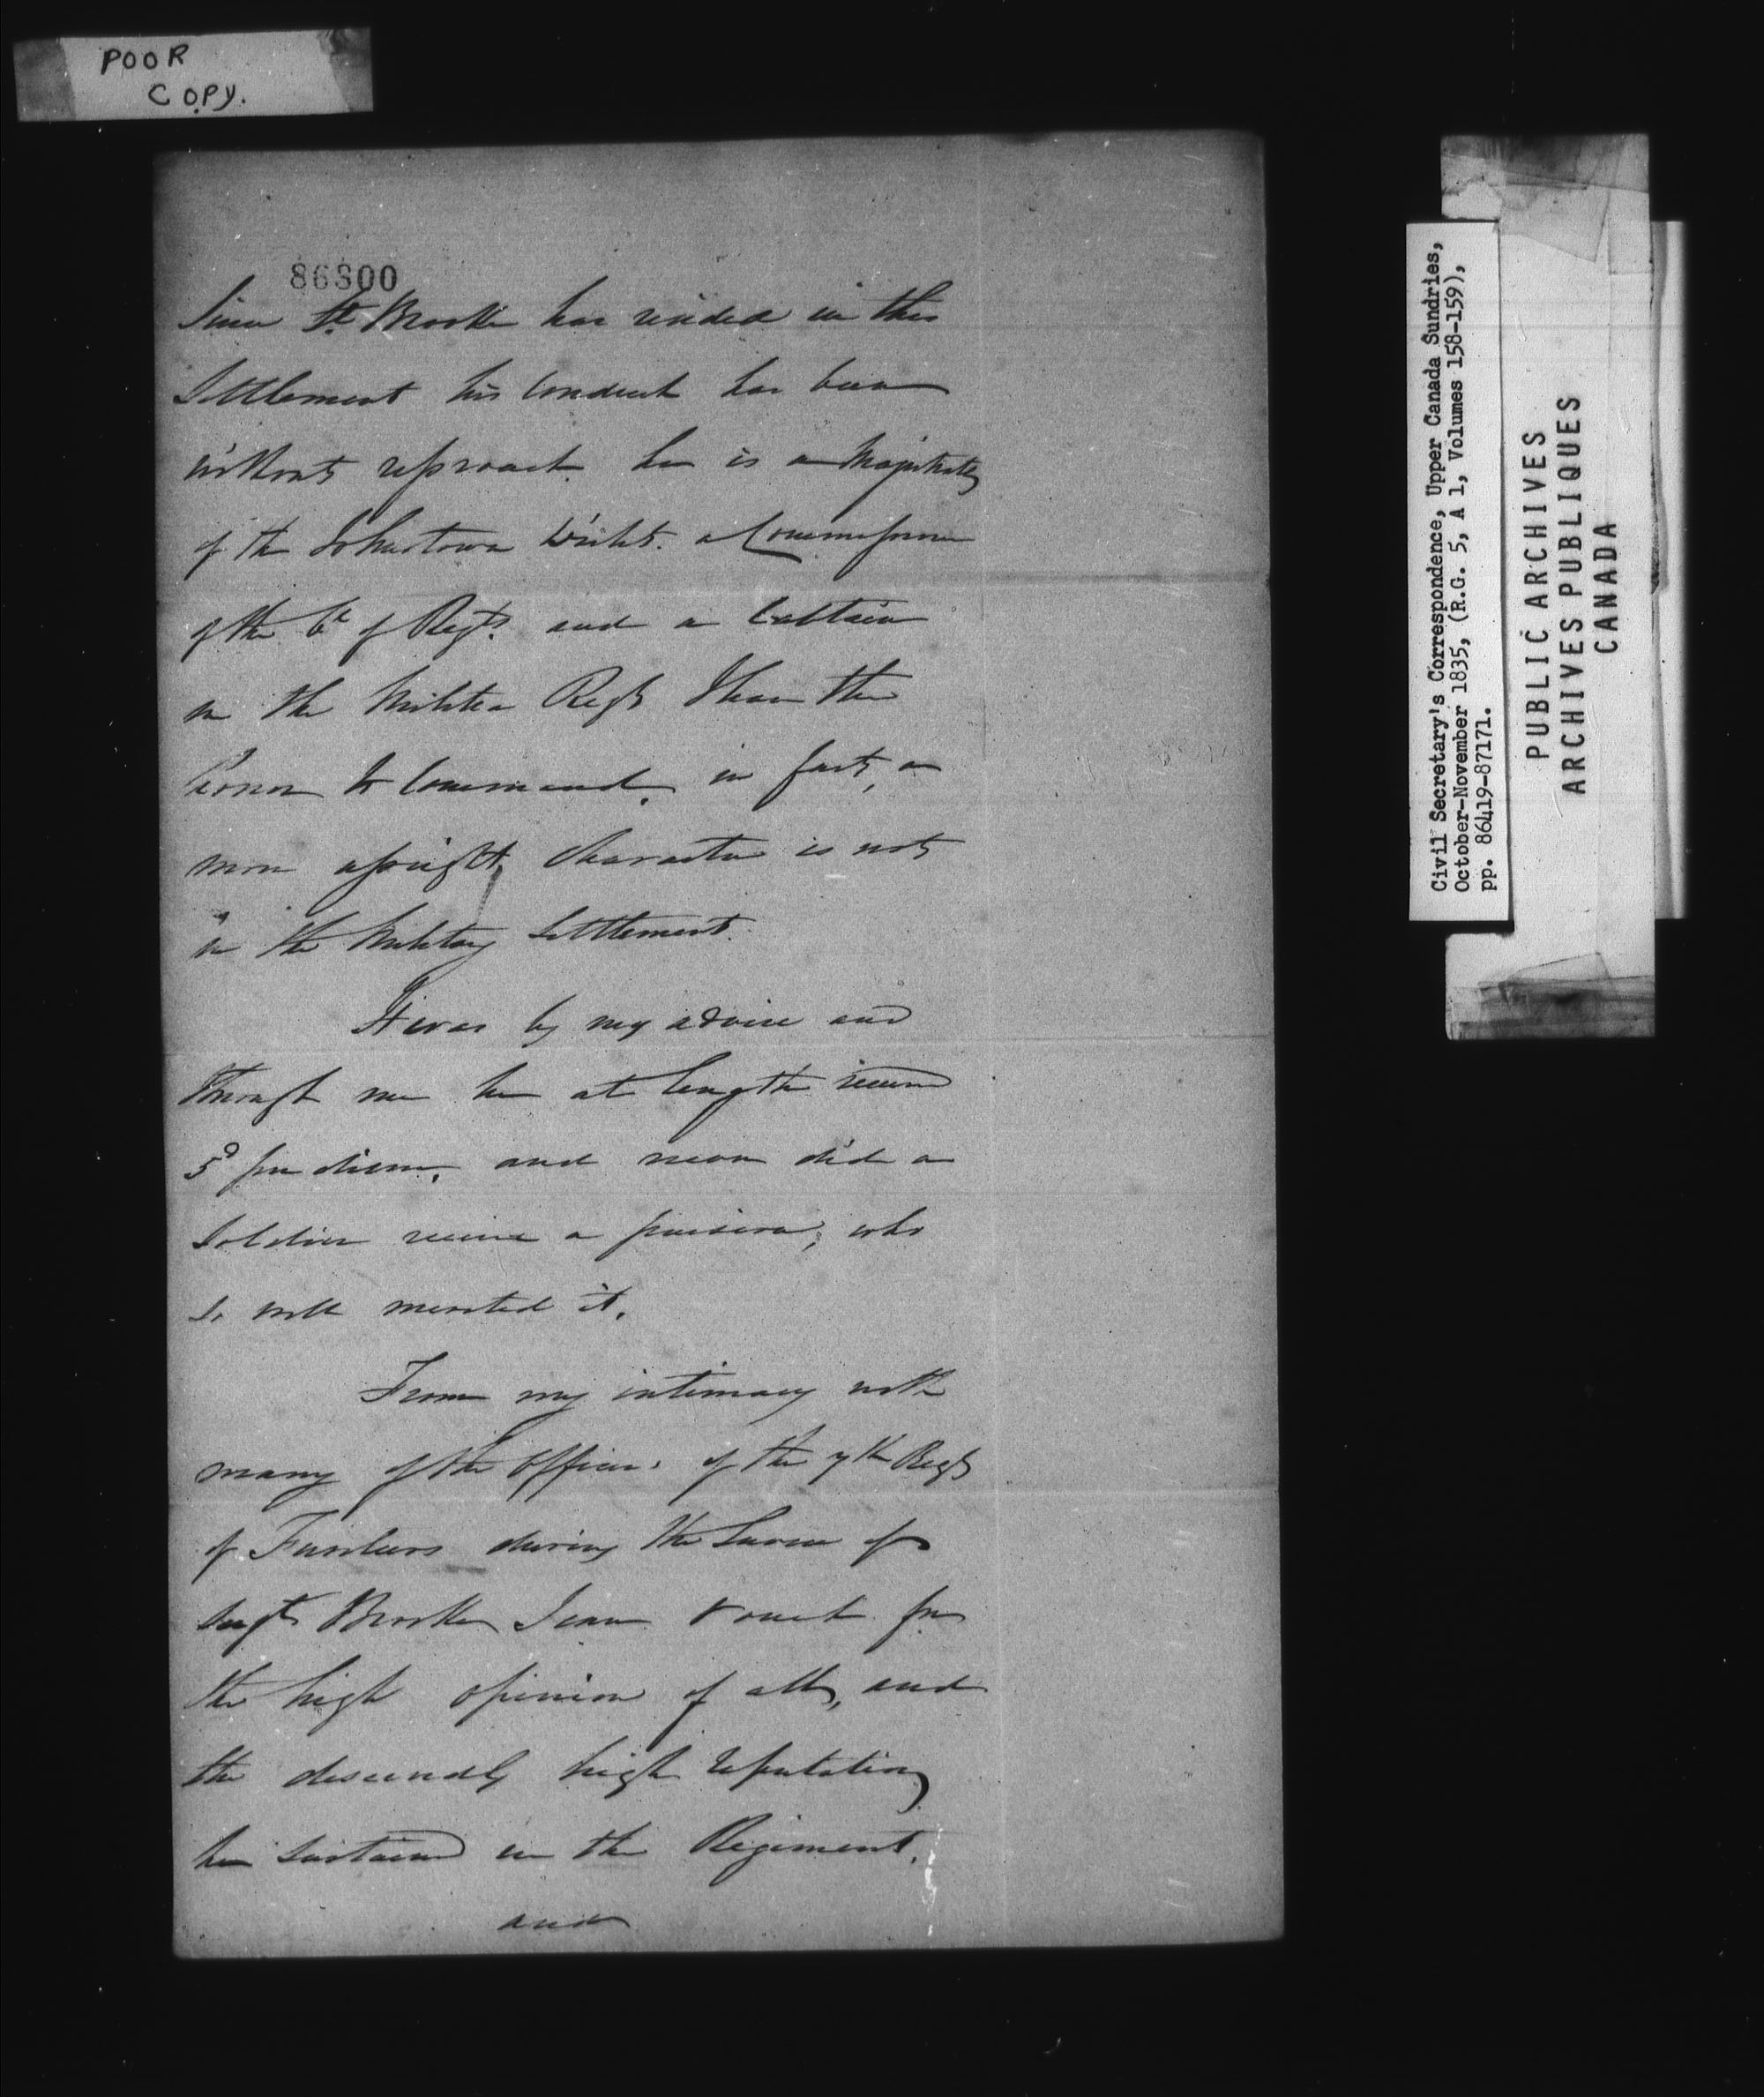 POOR
COPY.
86800
Since Lt. Brooke has resided in this
Settlement his Conduct has been
without reproach. he is a Magistrate
of the Johnstown District. a Commissioner
of the Ct of Reqts. and a Captain
in the Militia Regt I have the
honor to Command. in fact, a
more upright Character is not
in the Military Settlement.
It was by my advice and
through me he at length received
5d per diem. and never did a
Soldier receive a pension, who
so well merited it.
From my intimacy with
many of the Officers of the 7th Regt
of Fusileers during the Service of
Sergt Brooke, I can vouch for
the high opinion of all, and
the deservedly high reputation
he sustained in the Regiment.
and
Civil Secretary's Correspondence, Upper Canada Sundries,
October-November 1835, (R.G. 5, A 1, Volumes 158-159),
pp. 86419-87171.
PUBLIC ARCHIVES
ARCHIVES PUBLIQUES
CANADA